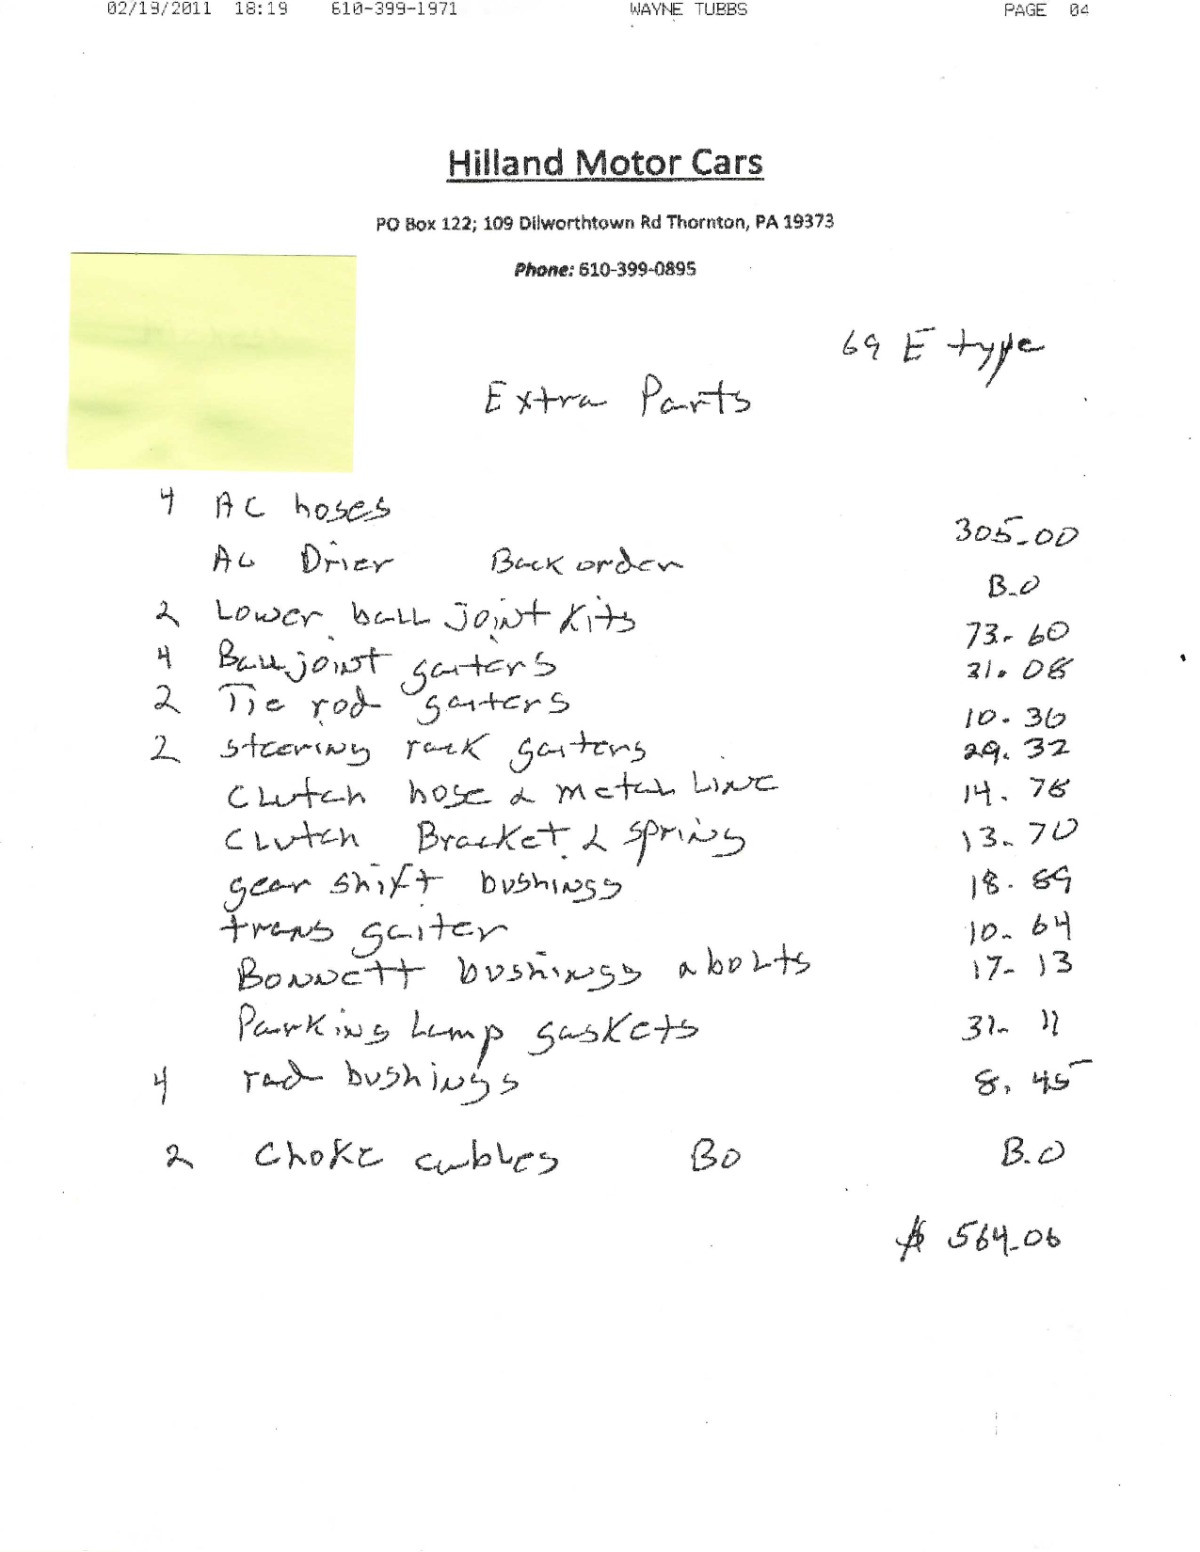 02/13/2011 18:19 610-399-1971 WAYNE TUBBS PAGE 04
Hilland Motor Cars
PO Box 122; 109 Dilworthtown Rd Thornton, PA 19373
Phone: 610-399-0895
69 E type
Extra Parts
4 AC hoses 305.00
AC Drier Back order B.O
2 Lower ball joint Kits 73.60
4 Ball joint gaiters 31.08
2 Tie rod gaiters 10.36
2 steering rack gaiters 29.32
Clutch hose & metal Line 14.78
Clutch Bracket & spring 13.70
gear shift bushings 18.89
trans gaiter 10.64
Bonnett bushings & bolts 17.13
Parking Lamp gaskets 31.11
4 rad bushings 8.45
2 Choke cables BO B.O
$ 564.06